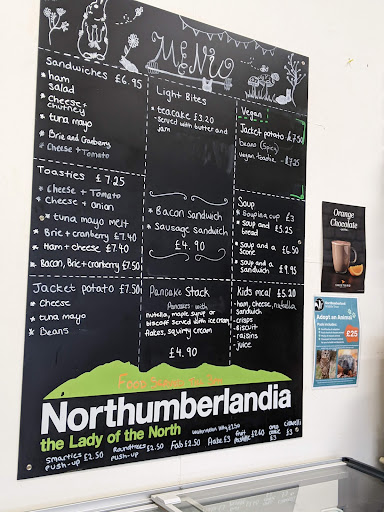 MENU
Sandwiches £6.95
* ham salad
* cheese + chutney
* tuna mayo
* Brie and Cranberry
* Cheese + Tomato
Toasties £7.25
* Cheese + Tomato
* Cheese + onion
* tuna mayo melt
* Brie + cranberry £7.40
* Ham + cheese £7.40
* Bacon, Brie + cranberry £7.50
Jacket potato £7.50
* Cheese
* tuna mayo
* Beans
Light Bites
* teacake £3.20
- served with butter and
jam
* Bacon Sandwich
* sausage sandwich
£4.90
Pancake Stack
Pancakes with
nutella, maple syrup or
biscoff served with ice cream
flakes, squirty cream
£4.90
Vegan
Jacket potato £7.50
Beans (Spicy)
Vegan toastie - £7.25
Soup
* Soup in a cup £3
* soup and
bread £5.25
* soup and a
scone £6.50
* soup and a
sandwich £9.95
Kids meal £5.20
ham, cheese, nutella,
sandwich
- crisps
- Biscuit
- raisins
- juice
Northumberlandia
the Lady of the North
smarties
push-up £2.50
push-up £2.50
Fab £2.50
fruit
pastille £2.60
£3
£3
Orange
Chocolate
Northumberland
Adopt an Animal
£25